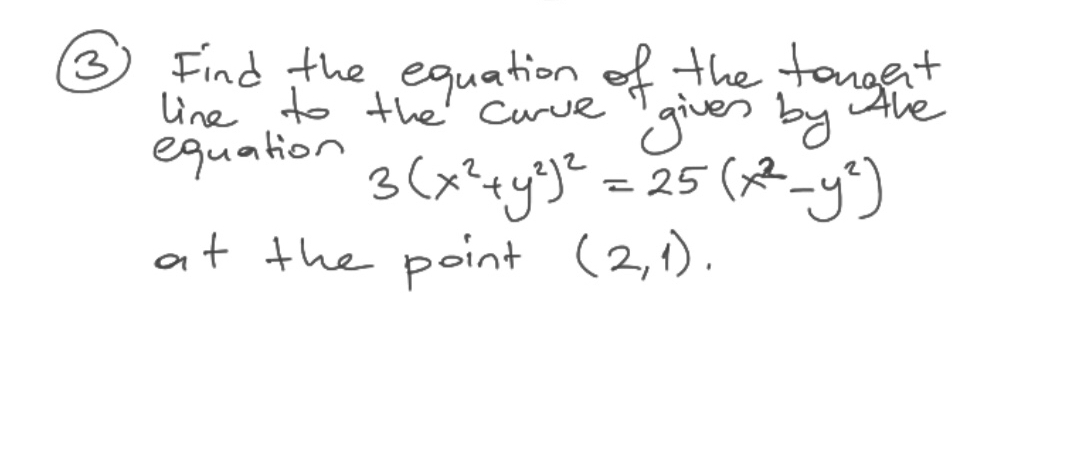 ③ Find the equation of the tangent
line to the curve given by the
equation
3(x²+y²)² = 25(x²-y²)
at the point (2,1).